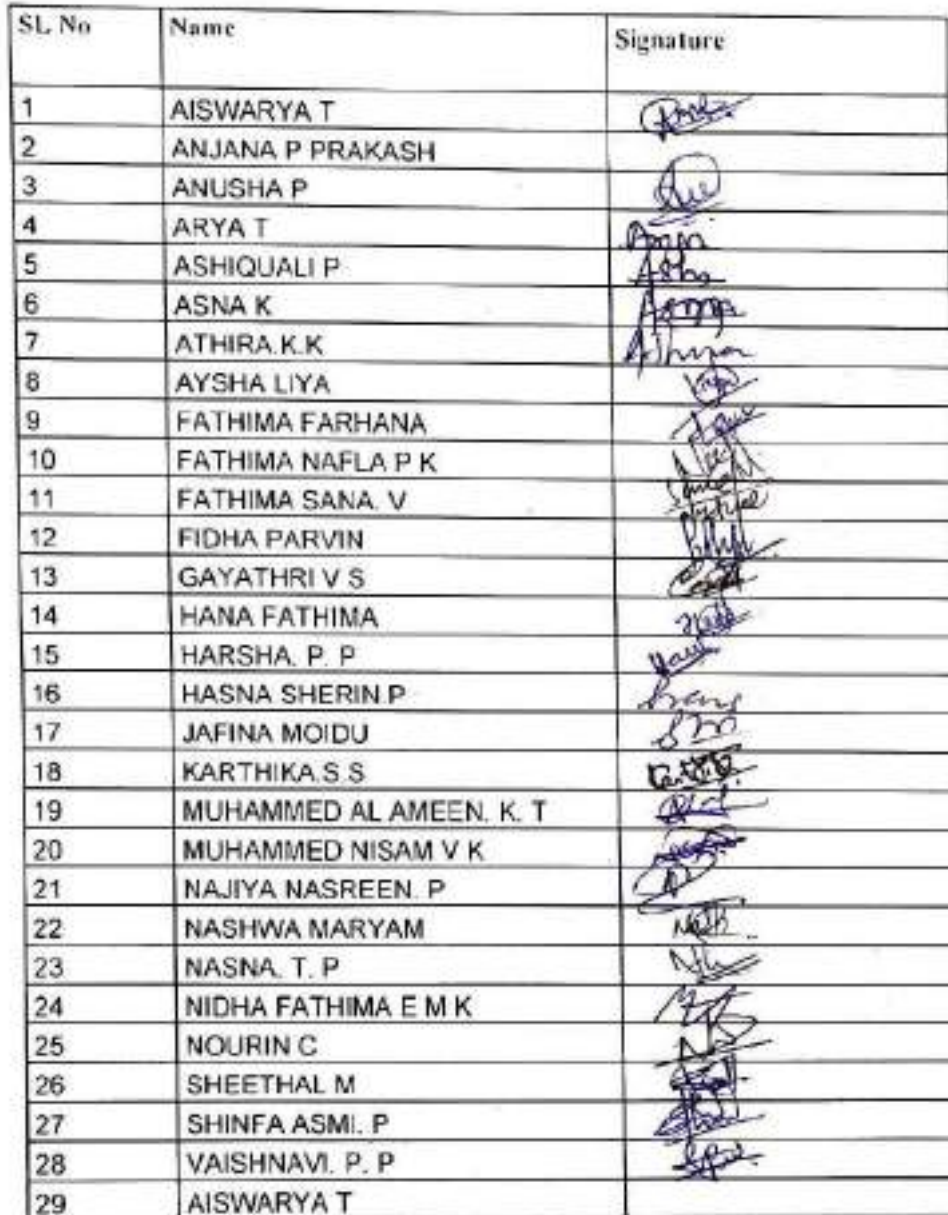 SL No Name Signature
1 AISWARYA T
2 ANJANA P PRAKASH
3 ANUSHA P
4 ARYA T
5 ASHIQUALI P
6 ASNA K
7 ATHIRA.K.K Athira
8 AYSHA LIYA
9 FATHIMA FARHANA
10 FATHIMA NAFLA P K
11 FATHIMA SANA. V
12 FIDHA PARVIN
13 GAYATHRI V S
14 HANA FATHIMA
15 HARSHA. P. P
16 HASNA SHERIN P
17 JAFINA MOIDU
18 KARTHIKA.S S
19 MUHAMMED AL AMEEN. K. T
20 MUHAMMED NISAM V K
21 NAJIYA NASREEN. P
22 NASHWA MARYAM
23 NASNA. T. P
24 NIDHA FATHIMA E M K
25 NOURIN C
26 SHEETHAL M
27 SHINFA ASMI. P
28 VAISHNAVI. P. P
29 AISWARYA T